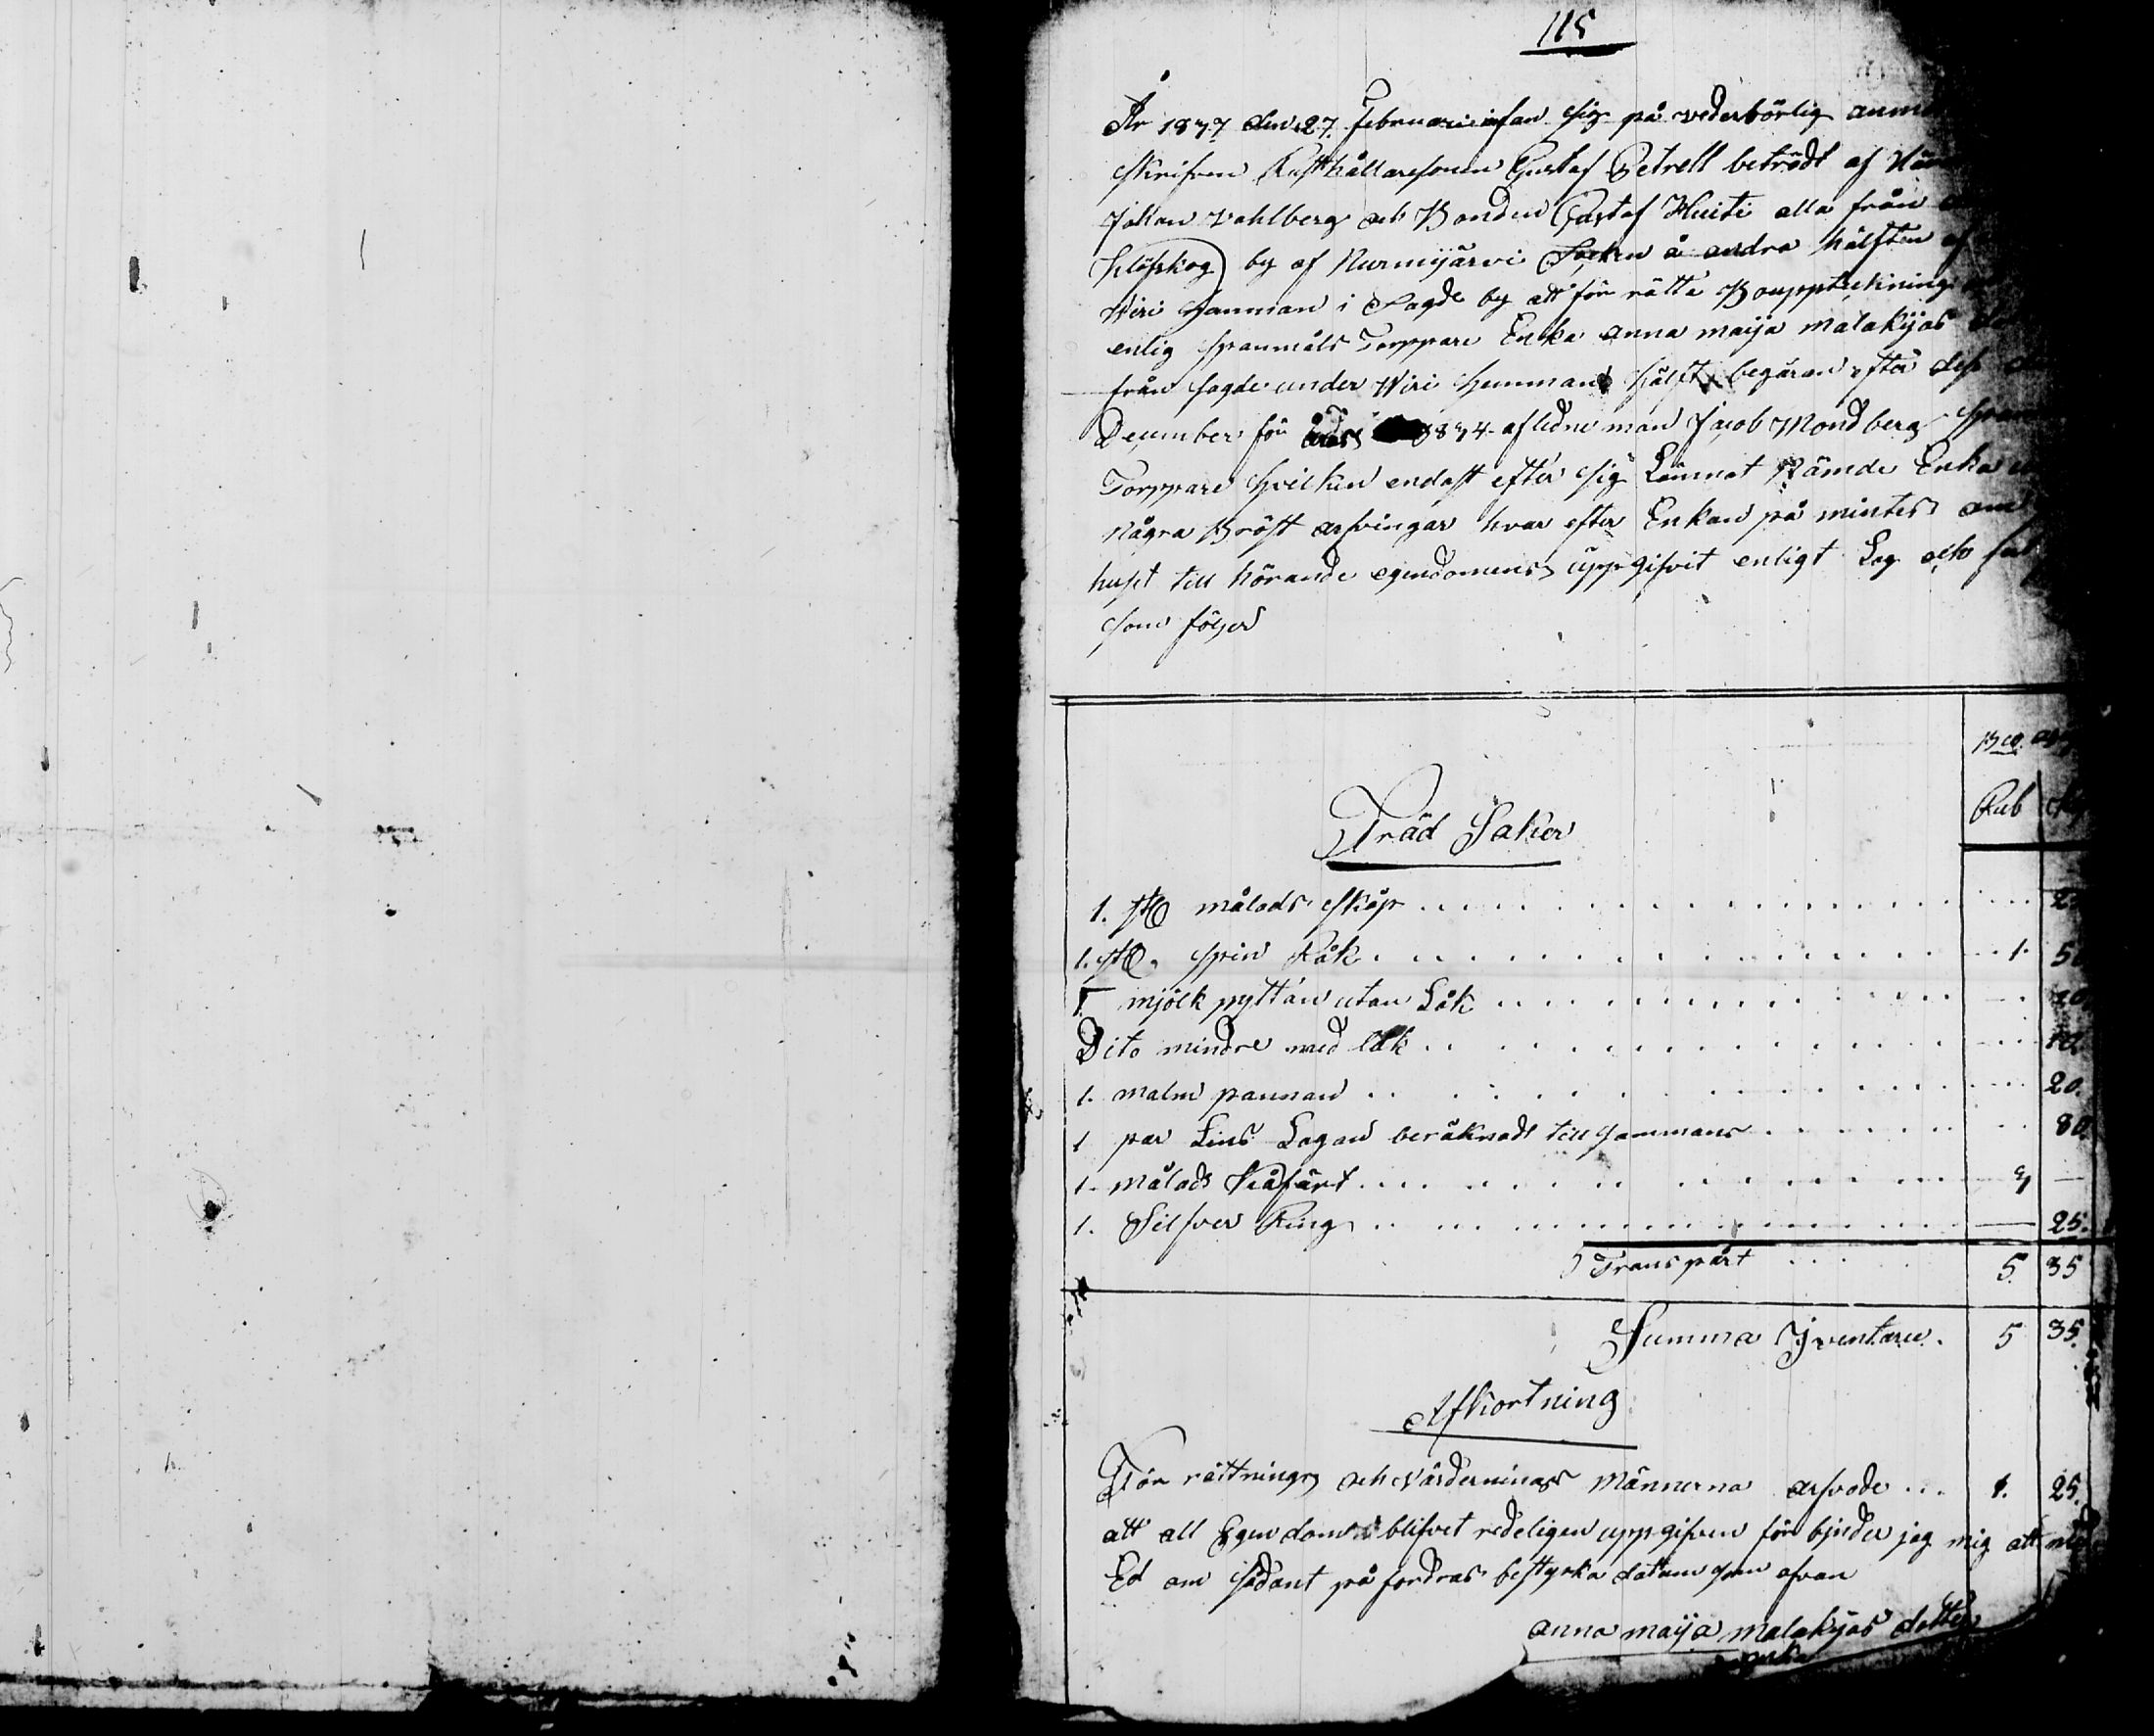 115
År 1837 den 27 Februari infan sig på vederbörlig anmo
skrifven Rusthållaresonen Gustaf Petrell beträdt af Näm
Johan Vahlberg och Bonden Gustaf Huiti alla från
Klöfskog by af Nurmijärvi Socken å andra hälften af
Wiri Hemman i Sagde by att för rätta Bouppteckning
enlig spanmåls Torppare Enka anna maija malakijas
från sagde under Wiri Hemmans hälft begäran efter dess
December för 1834 aflidne man Jacob Mondberg Span
Torppare hvilken endast efter sig Lämnat Nämde Enka
Några Bröst arfvingar hvar efter Enkan på mintes om
huset till hörande egendomens uppgifvit enligt Lag och
som följer
Bco.
Rub
Träd Saker
1. st målads skåp 2
1. st. spin Råk 1. 5
1 mjölk pyttan utan Låk 20
Dito mindre med låk 10
1. malm pannan 20.
1 par Lins Lagan beräknads till sammans 80
1. målads Kåfärt 3 —
1. Silfver Ring — 25.
Transpårt 5. 35
Summa Jventarie. 5 35.
Afkortning
För rättnings och Värdernings Männerna arfvode 1. 25.
att all Egendom blifvet redeligen uppgifven för bjnder jag mig att
Ed om sådant på fordras bestyrka datum som ofvan
anna maija malakijas dotter
enka